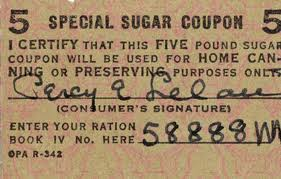 5 SPECIAL SUGAR COUPON 5
I CERTIFY THAT THIS FIVE POUND SUGAR
COUPON WILL BE USED FOR HOME CAN-
NING OR PRESERVING PURPOSES ONLY.
Percy E
(CONSUMER'S SIGNATURE)
ENTER YOUR RATION
BOOK IV NO. HERE 58888
OPA R-342